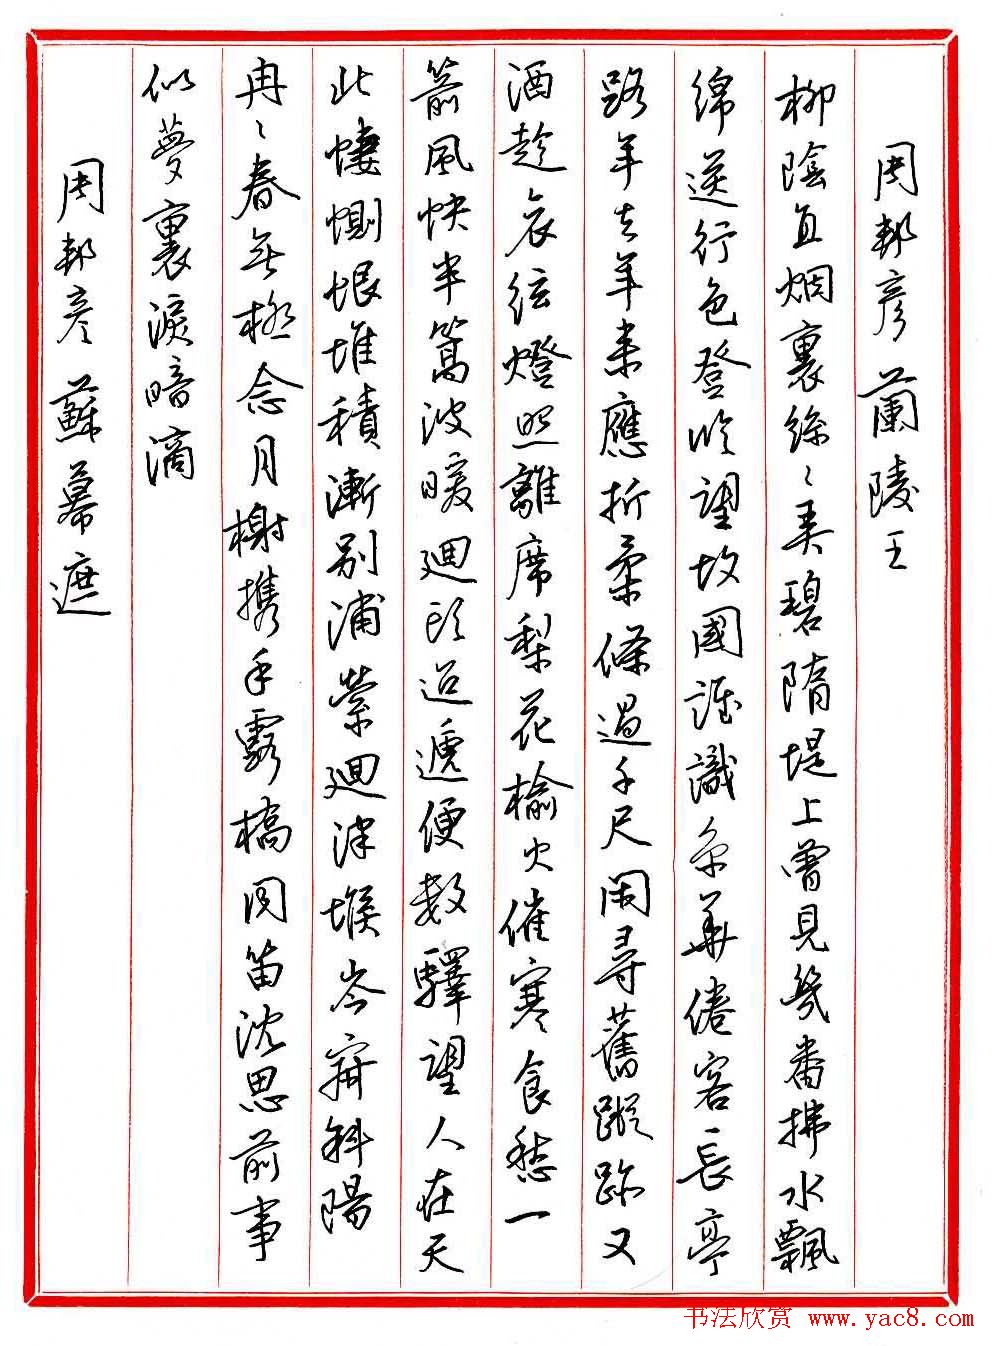 周邦彦 蘭陵王
柳陰直烟裏絲〻弄碧隋堤上曾見幾番拂水飄
綿送行色登臨望故國誰識京華倦客長亭
路年去年来應折柔條過千尺閑尋舊蹤跡又
酒趁哀弦燈照離席梨花榆火催寒食愁一
箭風快半篙波暖迴頭迢遞便數驛望人在天
北悽惻恨堆積漸别浦縈迴津堠岑寂斜陽
冉〻春無極念月榭携手露橋聞笛沈思前事
似夢裏淚暗滴
周邦彦 蘇幕遮
书法欣赏 www.yac8.com